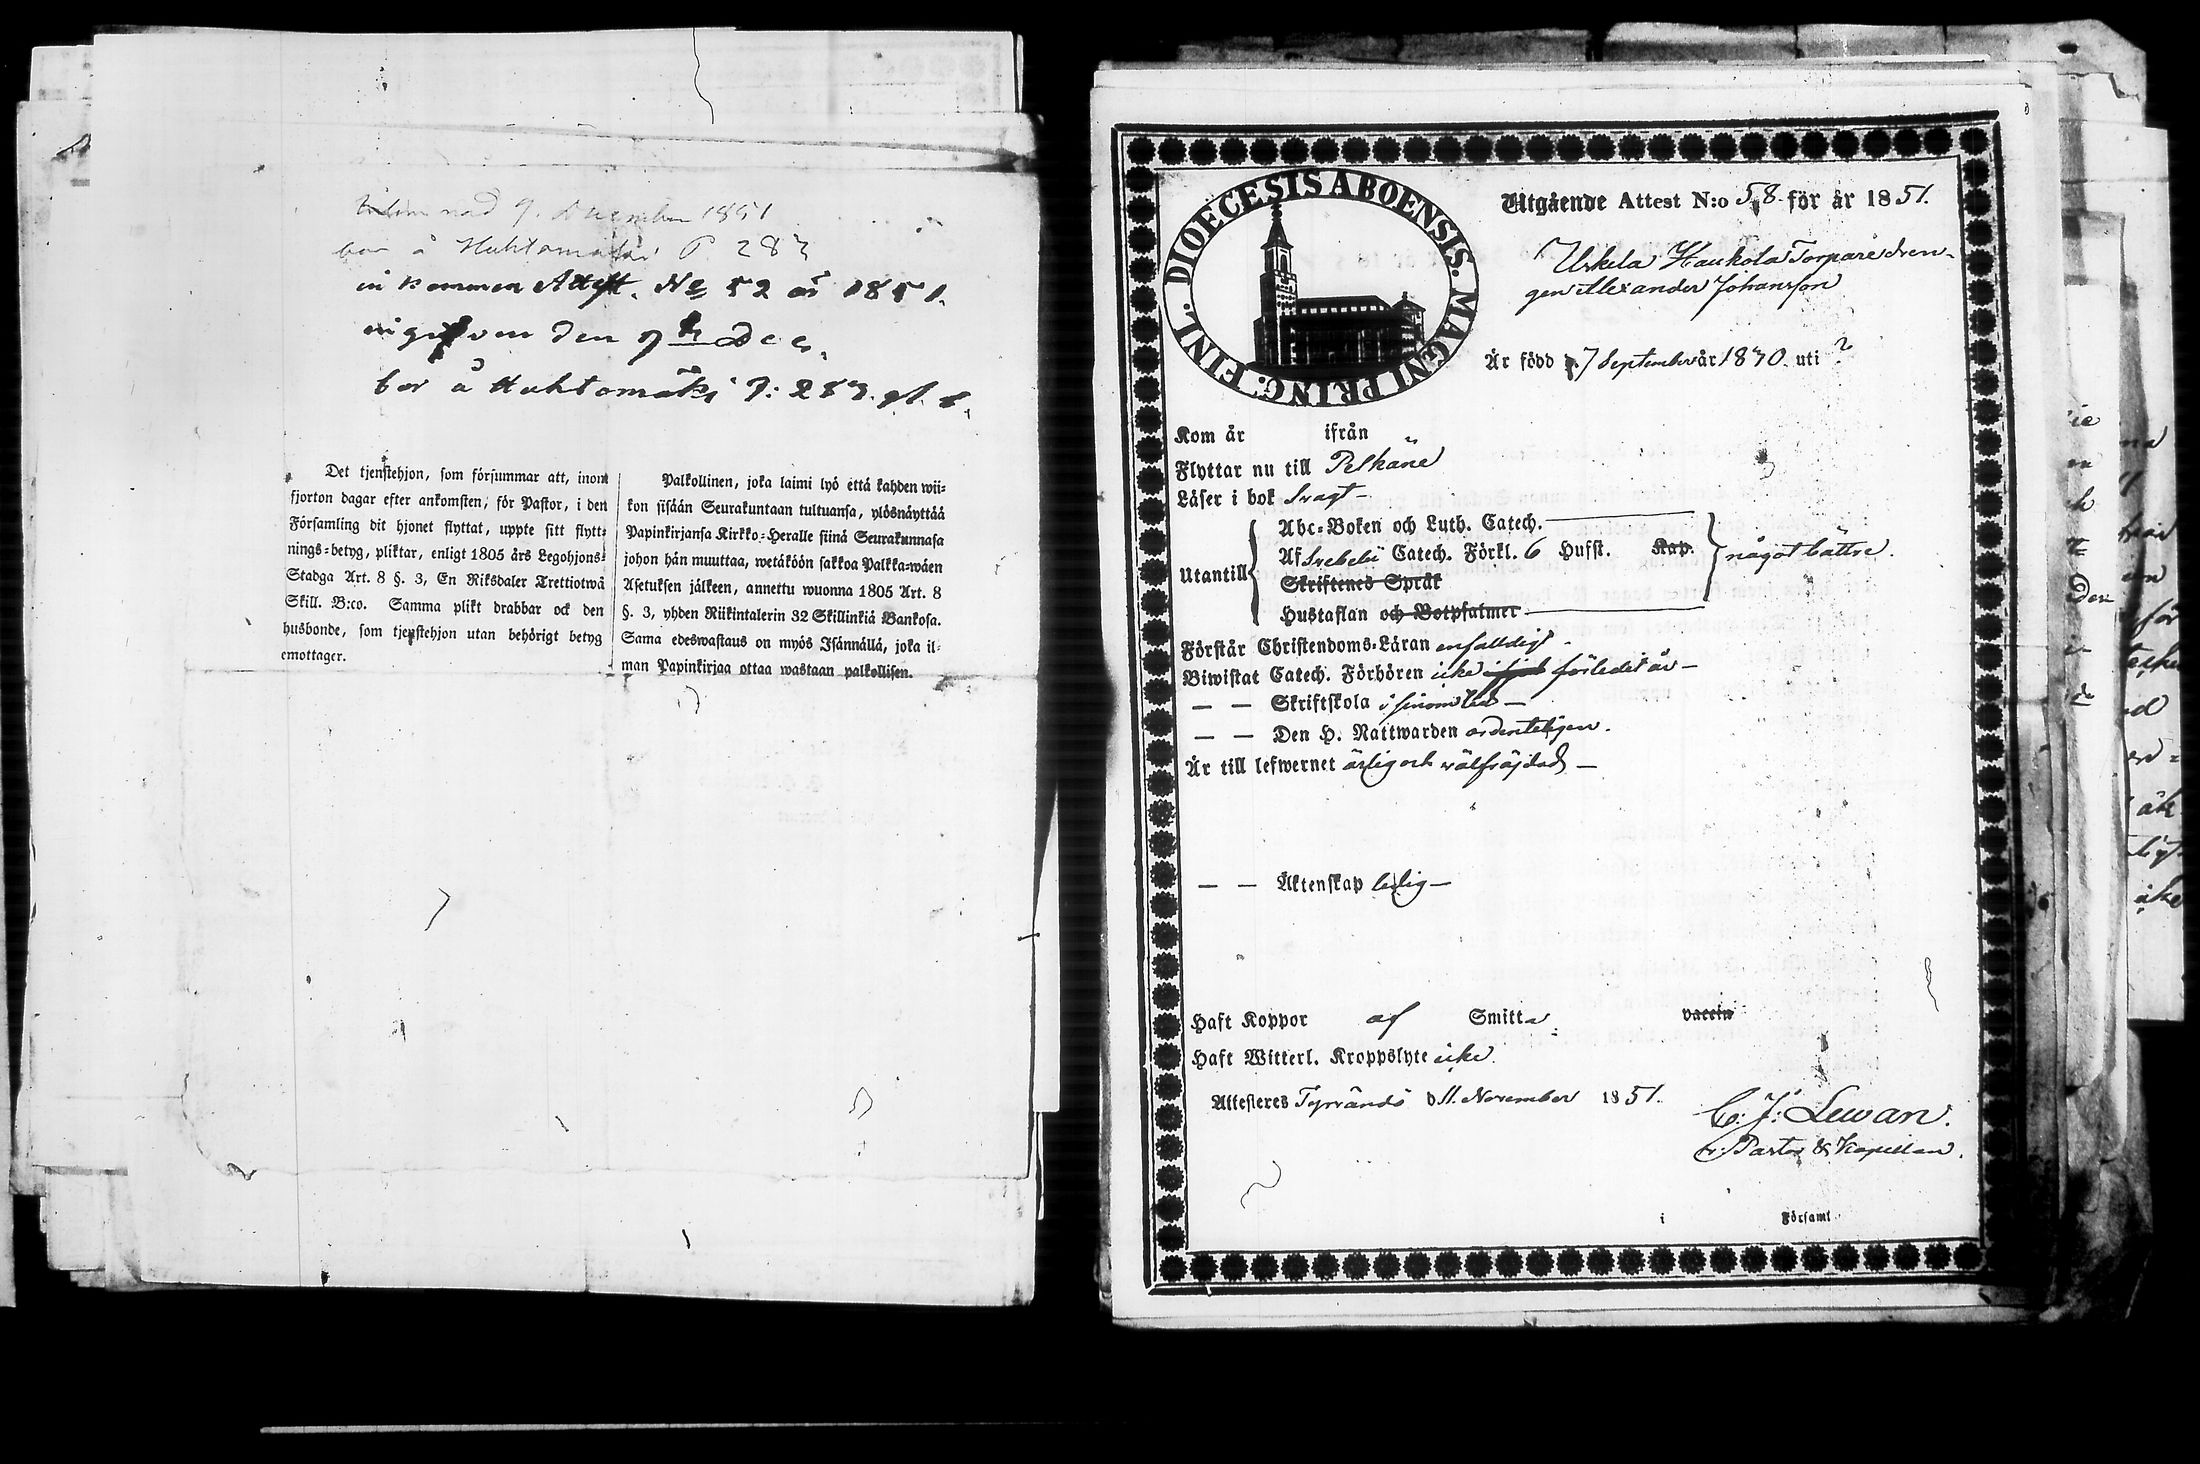 Inlemnad 9. December 1851
bor å Huhtomäki P 283
in kommen Attest. No 52 år 1851.
ingifven den 9 de Dec.
bor å Huhtomäki P: 283.
Det tjenstehjon, som försummar att, inom
fjorton dagar efter ankomsten, för Pastor, i den
Församling dit hjonet flyttat, uppte sitt flytt-
nings-betyg, pliktar, enligt 1805 års Legohjons-
Stadga Art. 8 §. 3, En Riksdaler Trettiotwå
Skill. B:co. Samma plikt drabbar ock den
husbonde, som tjenstehjon utan behörigt betyg
emottager.
Palkollinen, joka laimi lyö että kahden wii-
kon sisään Seurakuntaan tultuansa, ylösnäyttää
Papinkirjansa Kirkko-Heralle siinä Seurakunnasa
johon hän muuttaa, wetäköön sakkoa Palkka-wäen
Asetuksen jälkeen, annettu wuonna 1805 Art. 8
§. 3, yhden Riikintalerin 32 Skillinkiä Bankosa.
Sama edeswastaus on myös Isännällä, joka il-
man Papinkirjaa ottaa wastaan palkollisen.
DIOECESIS ABOENSIS. MAGNI PRINC. FINL.
Utgående Attest N:o 58. för år 1851.
Uskela Haukola Torpare dren-
gen Alexander Johansson
Är född d. 7 September år 1830. uti ?
Kom år ifrån
Flyttar nu till Pelkäne
Läser i bok svagt -
Utantill
Abc-Boken och Luth. Catech.
Af Svebelii Catech. Förkl. 6 Hufst. Kap. något bättre.
Skriftenes Språk
Hustaflan och Botpsalmer
Förstår Christendoms-Läran enfalldigt -
Biwistat Catech. Förhören icke förledit år -
— — Skriftskola i sinom tid -
— — Den H. Nattwarden ordenteligen.
Är till lefwernet ärlig och välfräjdad -
— — Äktenskap ledig -
Haft Koppor af Smitta vaccin
Haft Witterl. Kroppslyte icke.
Attesteres Tyrvändö d 11. November 1851.
C. J. Lewan.
v. Pastor & Kapellan.
i Församl.